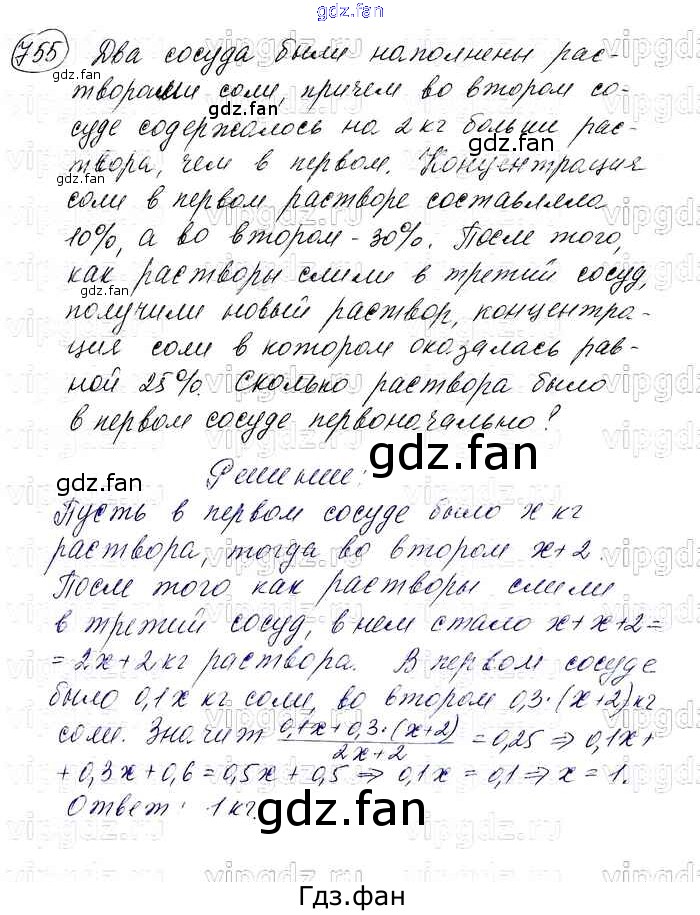 gdz.fan
755 Два сосуда были наполнены рас-
творами соли, причем во втором со-
суде содержалось на 2 кг больше рас-
твора, чем в первом. Концентрация
соли в первом растворе составляла
10%, а во втором - 30%. После того,
как растворы слили в третий сосуд,
получили новый раствор, концентра-
ция соли в котором оказалась рав-
ной 25%. Сколько раствора было
в первом сосуде первоначально?
Решение:
Пусть в первом сосуде было x кг
раствора, тогда во втором x+2.
После того как растворы слили
в третий сосуд, в нем стало x+x+2=
=2x+2 кг раствора. В первом сосуде
было 0,1x кг соли, во втором 0,3·(x+2) кг
соли. Значит (0,1x+0,3·(x+2))/(2x+2) = 0,25 ⇒ 0,1x+
+0,3x+0,6=0,5x+0,5 ⇒ 0,1x=0,1 ⇒ x=1.
Ответ: 1 кг.
gdz.fan
Гдз.фан